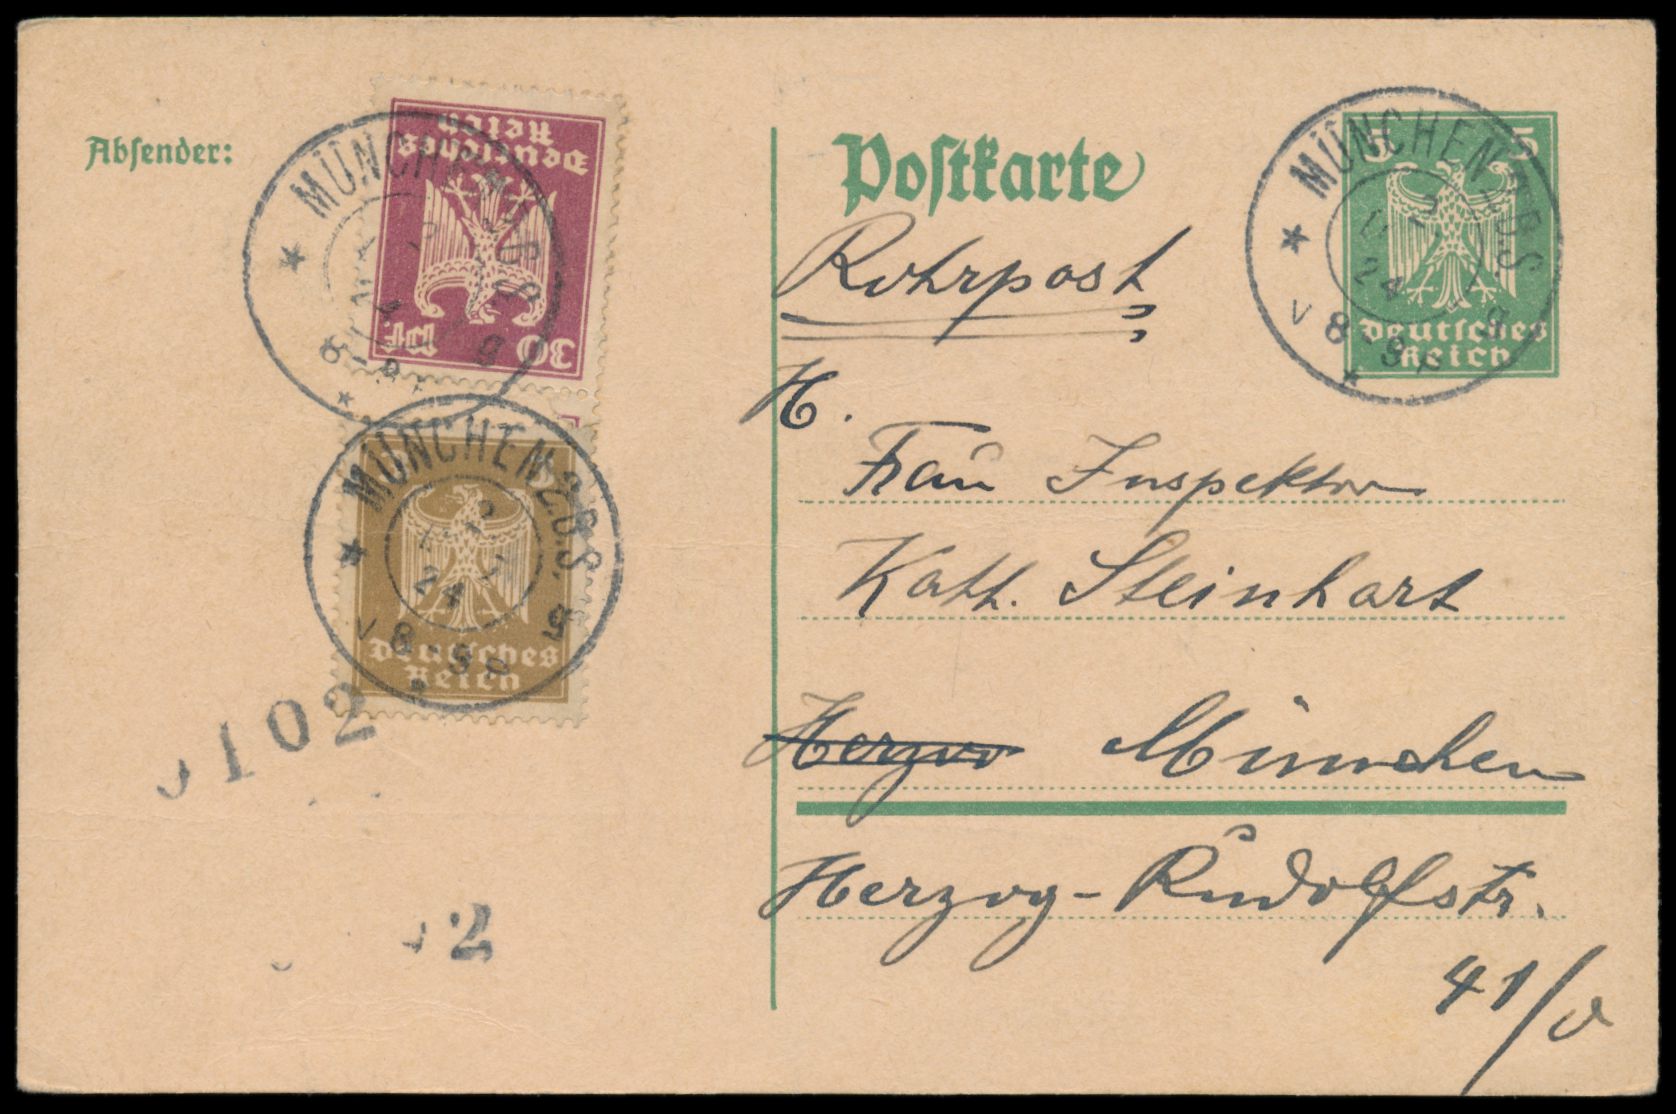 Absender:
Deutsches
Reich
30 Pf.
MÜNCHEN 2 B.S.
8-9
MÜNCHEN 2 B.S.
24
V 8-9 N
Deutsches
Reich
5102
2
Postkarte
5 5
MÜNCHEN 2 B.S.
24
V 8-9 N
Deutsches
Reich
Rohrpost
H.
Frau Inspektor
Kath. Steinhart
Herzo München
Herzog-Rudolfstr.
41/